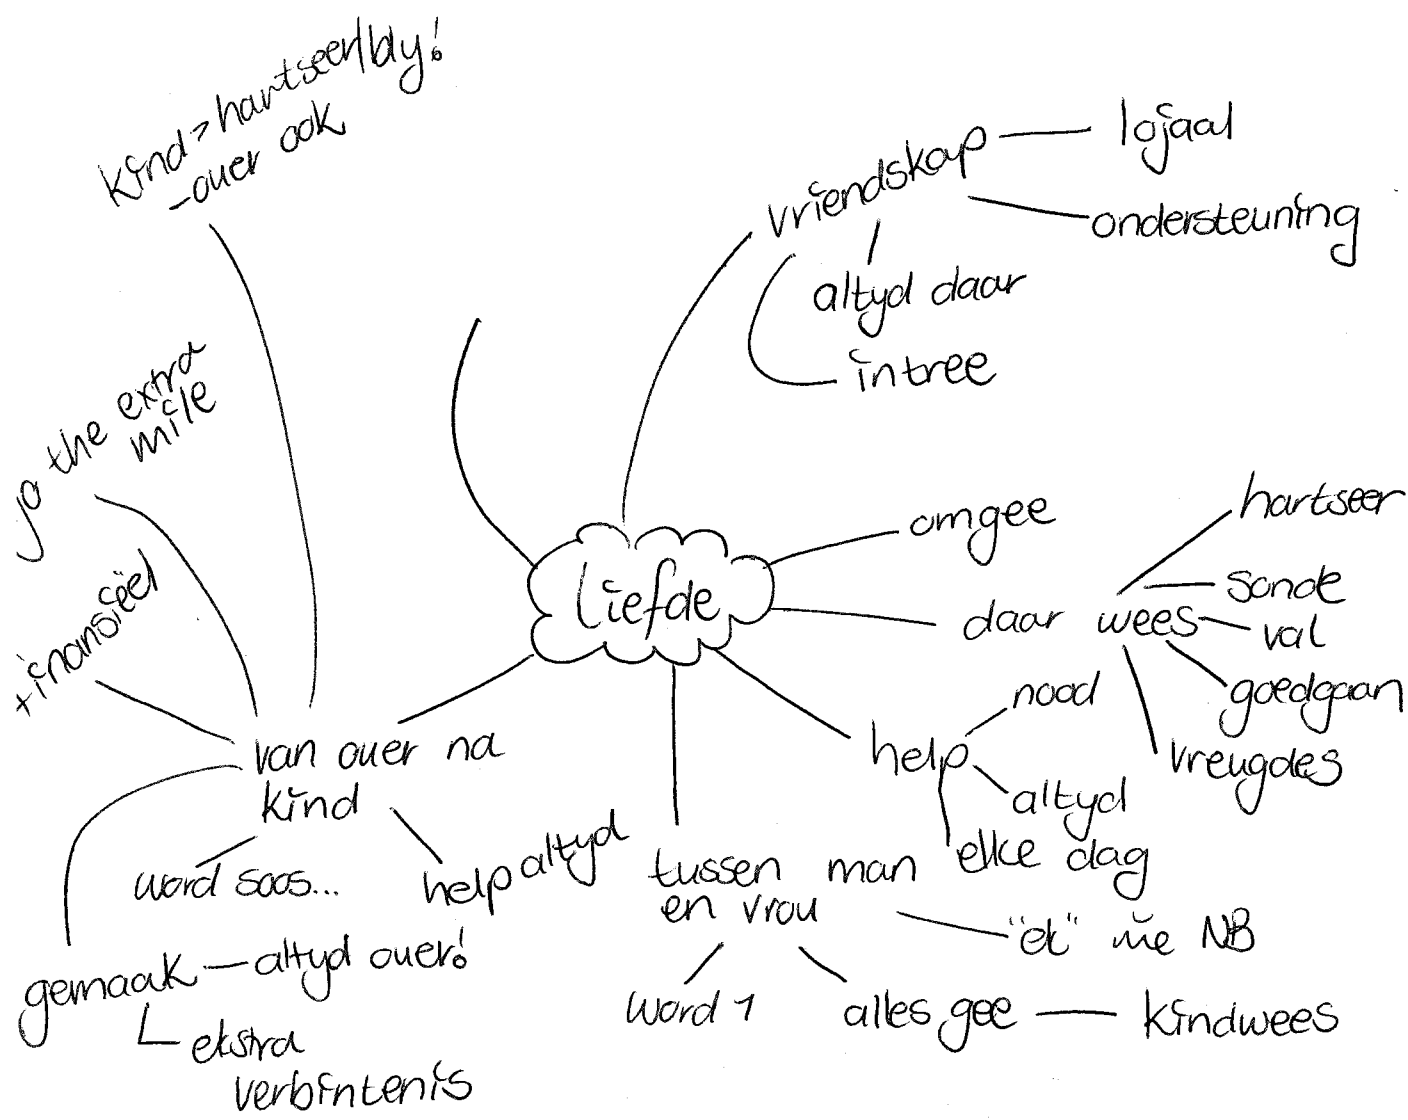 kind > hartseer/bly!
-ouer ook
vriendskap
lojaal
ondersteuning
altyd daar
intree
the extra
mile
+finansiëel
liefde
omgee
daar wees
hartseer
sonde
val
goedgaan
vreugdes
help
nood
altyd
elke dag
van ouer na
kind
word soos...
help altyd
gemaak
altyd ouer!
ekstra
verbintenis
tussen man
en vrou
"ek" nie NB
word 1
alles gee
kindwees